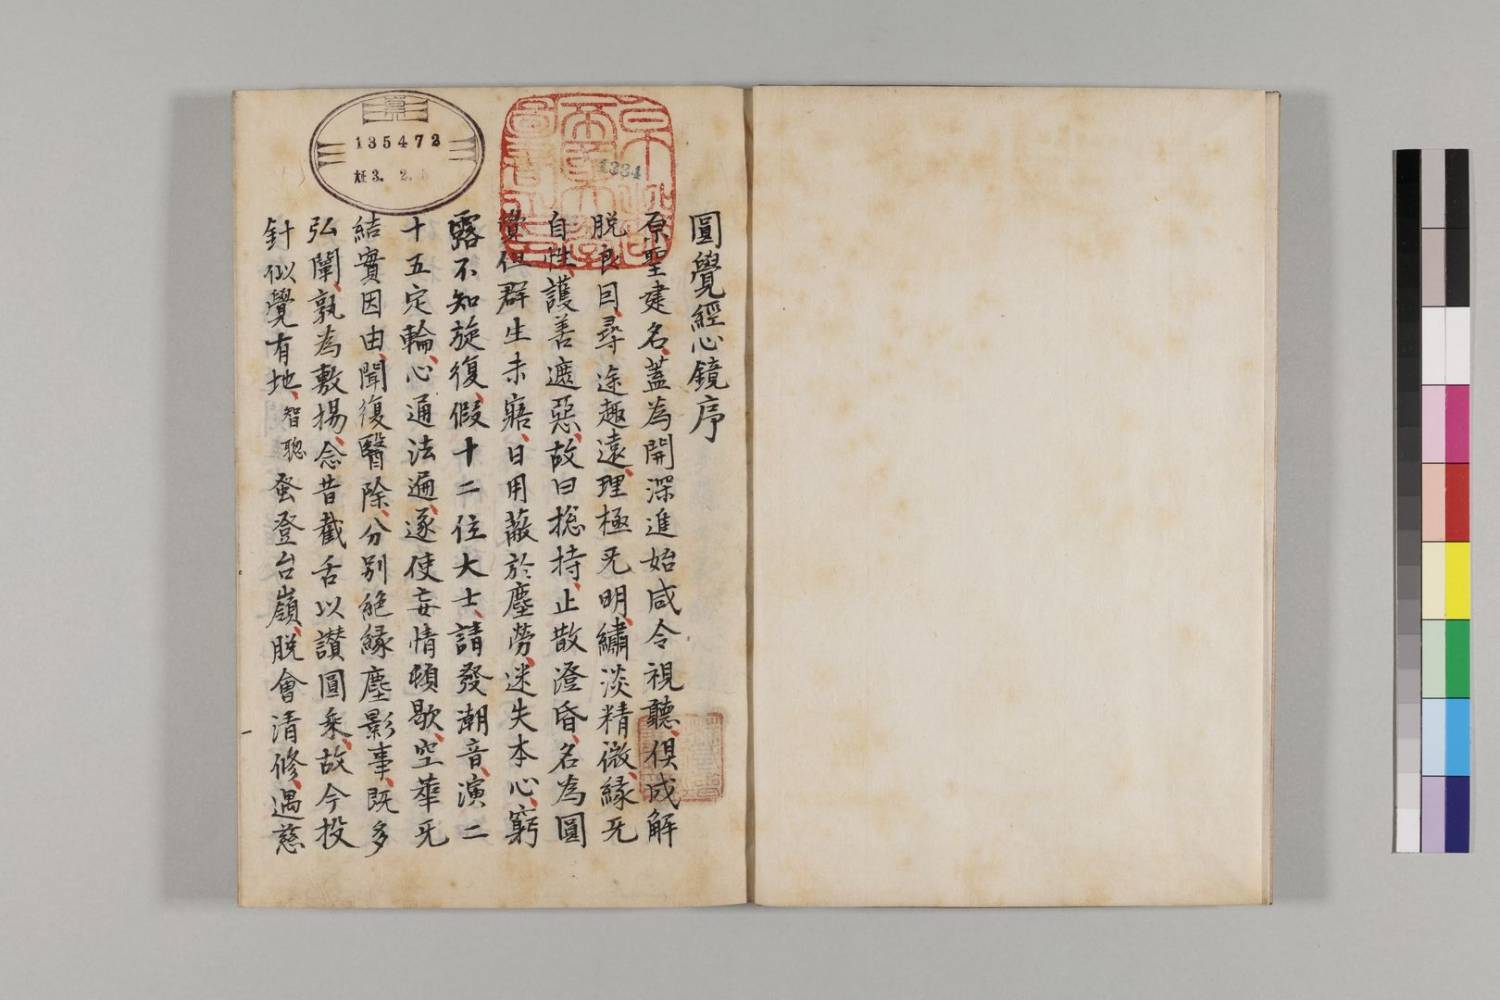 圓覺經心鏡序
原聖建名、蓋為開深進始咸令視聽、俱成解
脫良田、尋途趣遠、理極旡明、繡淡精微、緣旡
自性、護善遮惡、故曰揔持、止散澄昏、名為圓
覺但群生未寤、日用蔽於塵勞、迷失本心、窮
露不知旋復、假十二位大士、請發潮音、演二
十五定輪、心通法遍、遂使妄情頓歇、空華旡
結實因由、聞復醫除、分別能緣塵影事、既多
弘闡、孰為敷揚、念昔截舌以讃圓乘、故今投
針似覺有地、智聰 蚤登台嶺、脫會清修、遇慈
135472
大正3. 2.
1334
京都帝國大學圖書之印